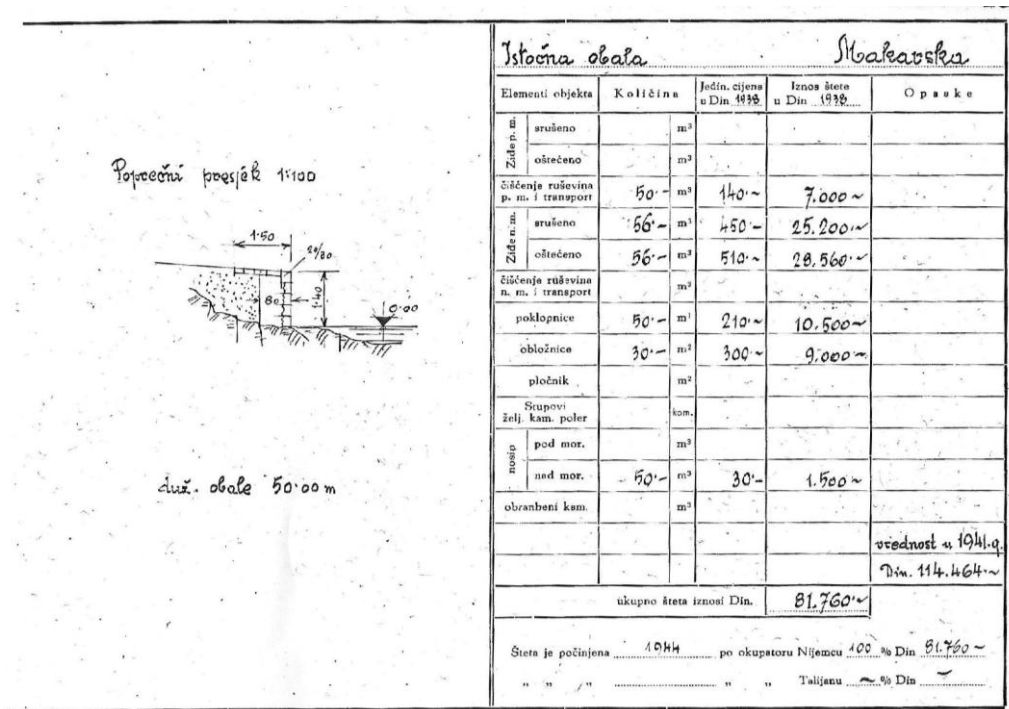 Poprečni presjek 1:100
1·50
20/30
80
1·40
0·00
duž. obale 50·00 m
Istočna obala Makarska
Elementi objekta Količina Jedin. cijena u Din 1938 Iznos štete u Din 1938 Opaske
Ziđe p. m. srušeno m³
oštećeno m³
čišćenje ruševina p. m. i transport 50·– m³ 140·~ 7.000 ~
Ziđe n. m. srušeno 56·– m³ 450·– 25.200·~
oštećeno 56·– m³ 510·– 28.560·~
čišćenje ruševina n. m. i transport m³
poklopnice 50·– m¹ 210·~ 10.500~
obložnice 30·– m² 300·~ 9.000~
pločnik m²
Stupovi želj. kam. poler kom.
nosip pod mor. m³
ned mor. 50·– m³ 30·– 1.500 ~
obranbeni kam. m³
vrednost u 1941.g.
Din. 114.464·~
ukupno šteta iznosi Din. 81.760·~
Šteta je počinjena 1944 po okupatoru Nijemcu 100 % Din 81.760 ~
" " " " " Talijanu ~ % Din ~